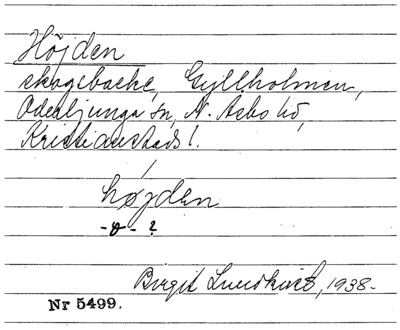 Höjden
skogsbacke, Gyllholmen,
Oderljunga sn, N. Åsbo hd,
Kristianstads l.
højden
-ø- ?
Birgit Lundkvist, 1938.
Nr 5499.